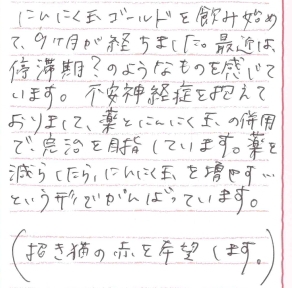 にんにく玉ゴールドを飲み始め
て、9ヶ月が経ちました。最近は
停滞期?のようなものを感じて
います。不安神経症を抱えて
おりまして、薬とにんにく玉の併用
で、完治を目指しています。薬を
減らしたら、にんにく玉を増やす…
という形でがんばっています。
(招き猫の赤を希望します。)